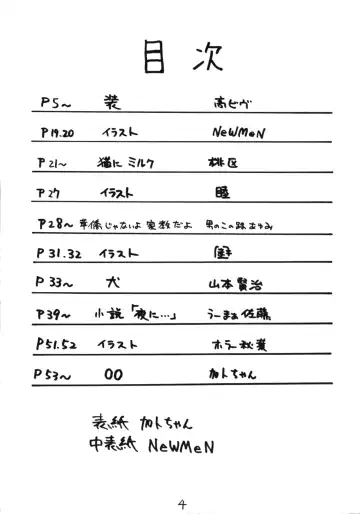 目次
P5～ 装 高ヒヴ
P19.20 イラスト NeWMeN
P21～ 猫にミルク 桃区
P27 イラスト 睦
P28～ 準備じゃないよ 家教だよ 男のこの路あゆみ
P31.32 イラスト
P33～ 犬 山本賢治
P39～ 小説「夜に…」 うーまぁ佐藤
P51.52 イラスト ホラー秋葉
P53～ OO 加トちゃん
表紙 加トちゃん
中表紙 NeWMeN
4